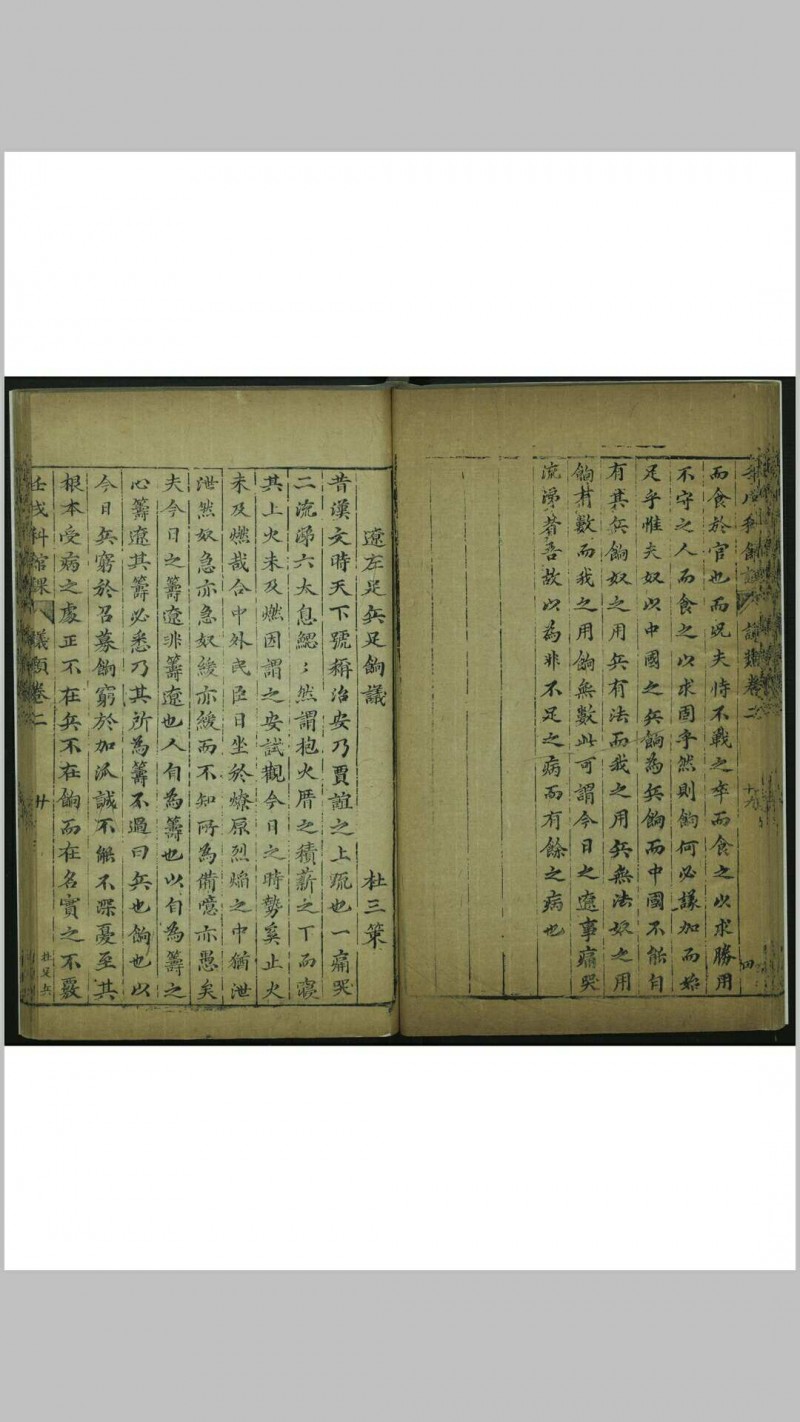 而食於官也而況夫恃不戰之卒而食之以求勝用
不守之人而食之以求固乎然則餉何必議加而始
足乎惟夫奴以中國之兵餉為兵餉而中國不能自
有其兵餉奴之用兵有法而我之用兵無法奴之用
餉有數而我之用餉無數此可謂今日之遼事痛哭
流涕者吾故以為非不足之病而有餘之病也
遼左足兵足餉議 杜三策
昔漢文時天下號稱治安乃賈誼之上疏也一痛哭
二流涕六太息鰓〻然謂抱火厝之積薪之下而寢
其上火未及燃因謂之安試觀今日之時勢奚止火
未及燃哉合中外民臣日坐於燎原烈焰之中猶泄
泄然奴急亦急奴緩亦緩而不知所為備噫亦愚矣
夫今日之籌遼非籌遼也人自為籌也以自為籌之
心籌遼其籌必悉乃其所為籌不過曰兵也餉也以
今日兵窮於召募餉窮於加派誠不能不深憂至其
根本受病之處正不在兵不在餉而在名實之不覈
壬戌科館課 議類卷二 廿 杜足兵